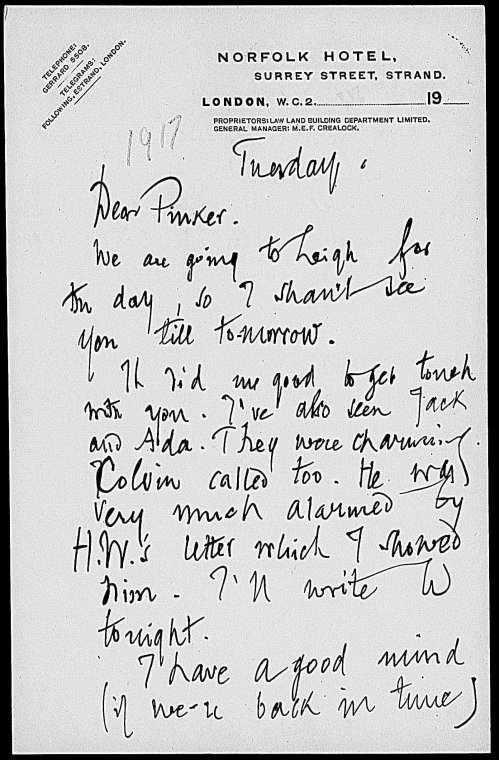 TELEPHONE:
GERRARD 5508.
TELEGRAMS:
FOLLOWING, ESTRAND, LONDON.
NORFOLK HOTEL,
SURREY STREET, STRAND.
LONDON, W.C.2. 19
PROPRIETORS: LAW LAND BUILDING DEPARTMENT LIMITED.
GENERAL MANAGER: M.E.F. CREALOCK.
1917
Tuesday.
Dear Pinker.
We are going to Leigh for
the day, so I shan't see
you till to-morrow.
It did me good to get touch
with you. I've also seen Jack
and Ada. They were charming.
Colvin called too. He was
very much alarmed by
H.W.'s letter which I showed
him. I'll write W
tonight.
I have a good mind
(if we-re back in time)